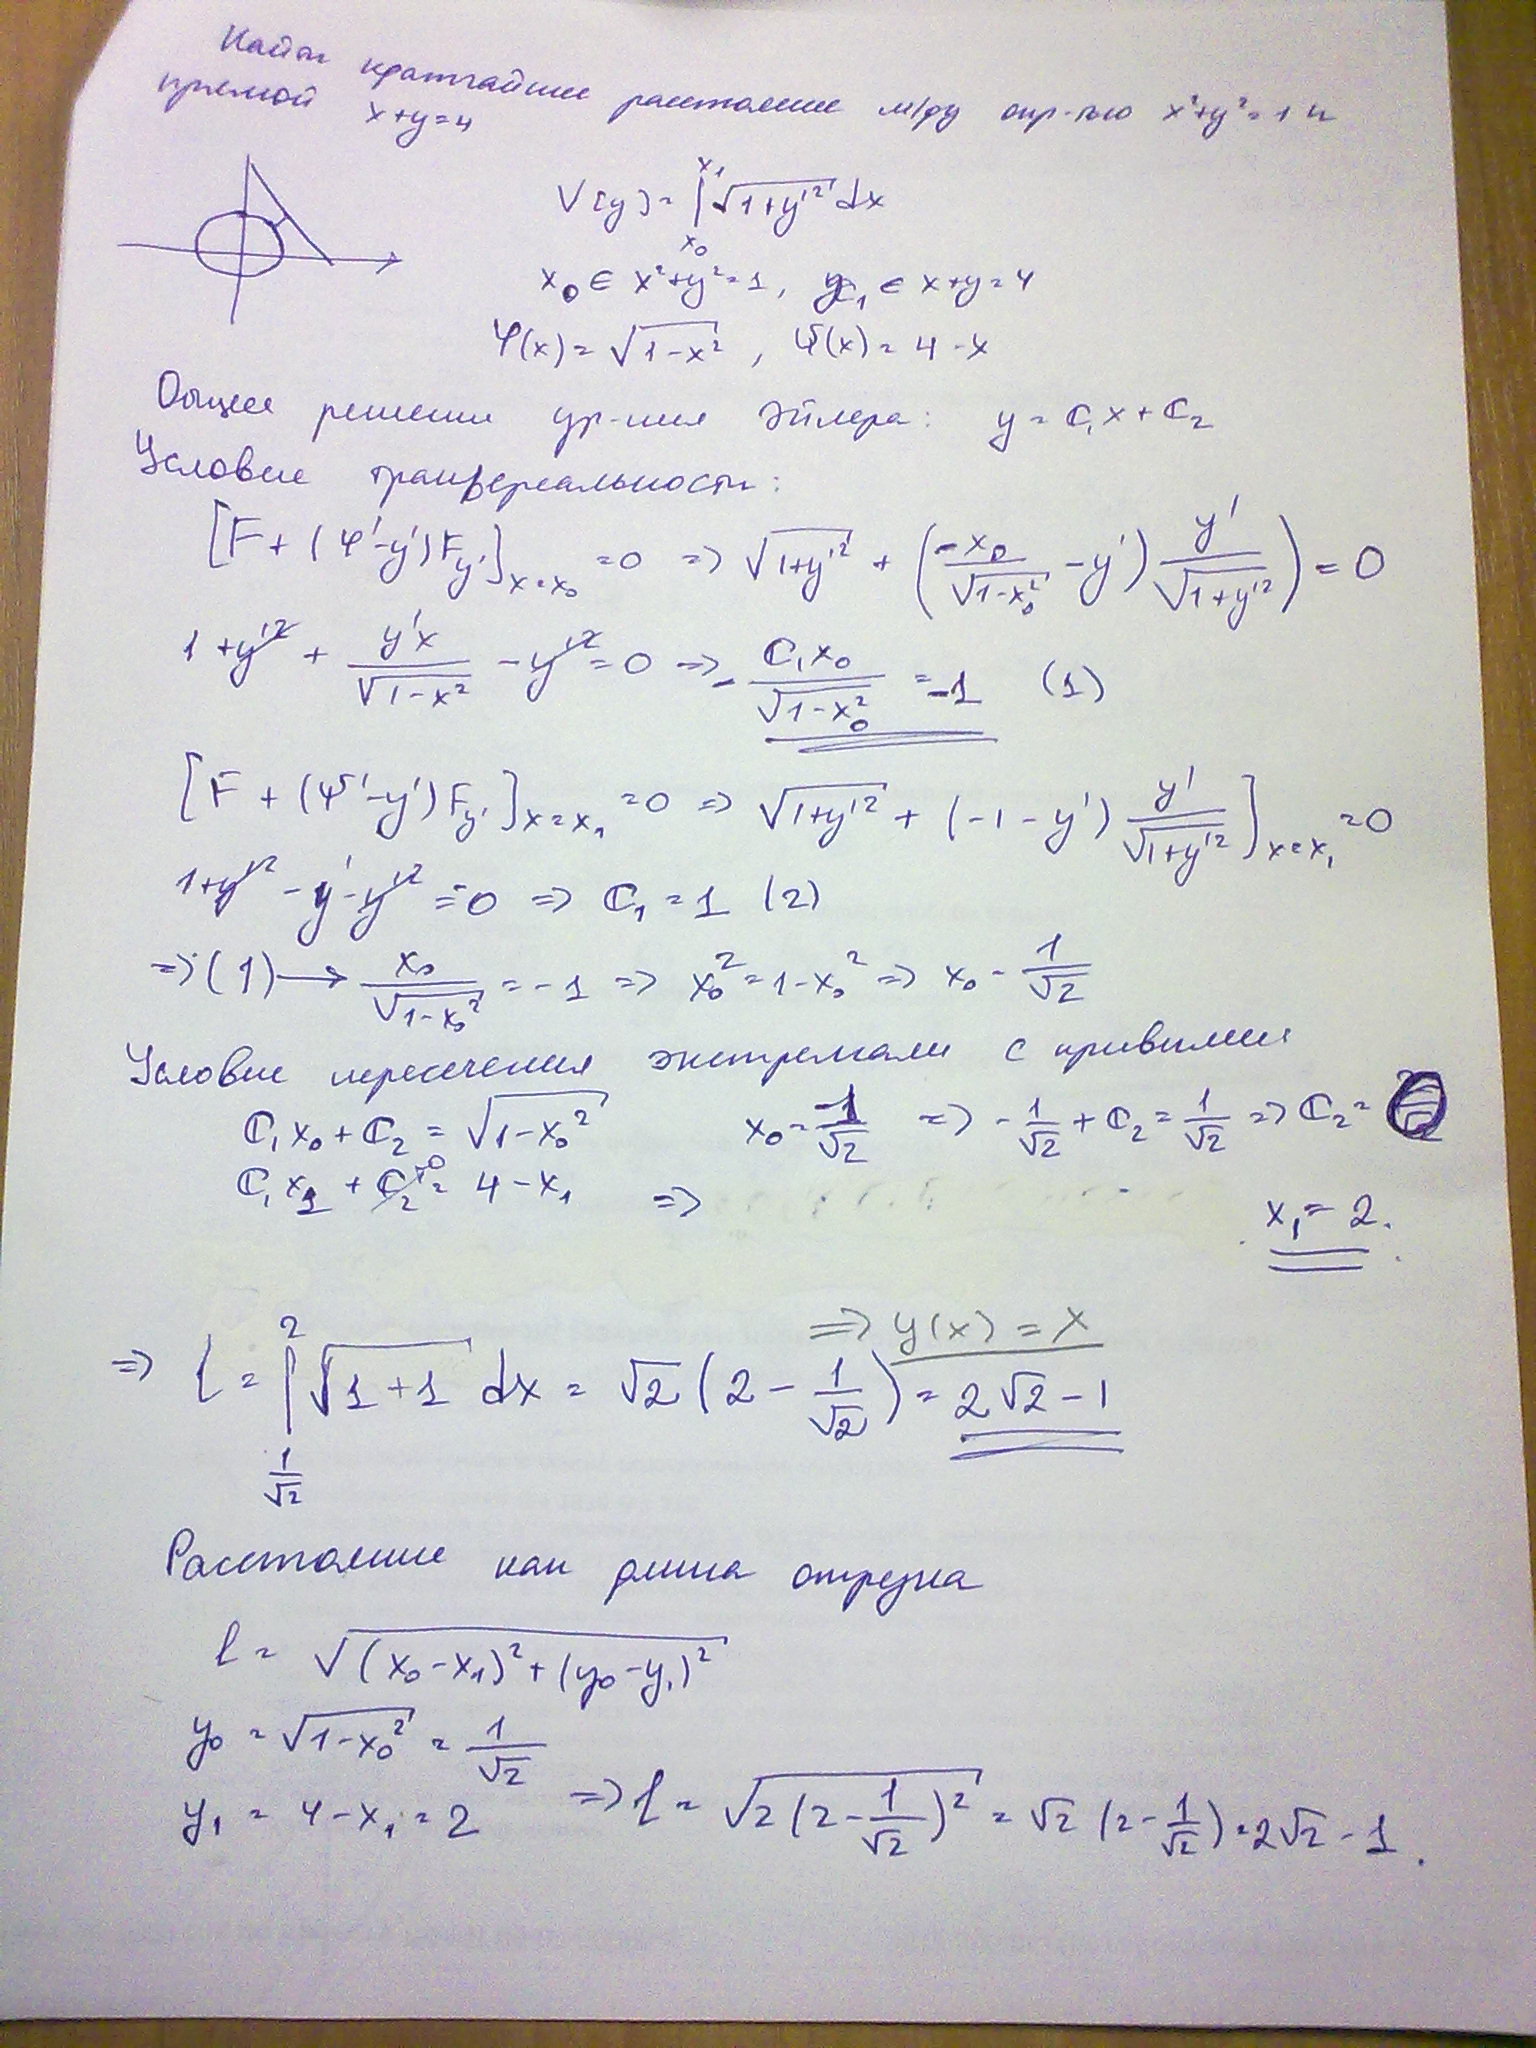 Найти кратчайшее расстояние м/ду окр-тью x²+y²=1 и
прямой x+y=4
V[y]=∫_{x₀}^{x₁} √(1+y'²) dx
x₀ ∈ x²+y²=1, x₁ ∈ x+y=4
φ(x)=√(1-x²), ψ(x)=4-x
Общее решение ур-ния Эйлера: y=C₁x+C₂
Условие трансверсальности:
[F+(φ'-y')F_{y'}]_{x=x₀}=0 => √(1+y'²) + (-x₀/√(1-x₀²) - y') y'/√(1+y'²)) = 0
1+y'² + y'x/√(1-x²) - y'²=0 => - C₁x₀/√(1-x₀²) = -1 (1)
[F+(ψ'-y')F_{y'}]_{x=x₁}=0 => √(1+y'²) + (-1-y') y'/√(1+y'²)]_{x=x₁}=0
1+y'² - y' - y'² = 0 => C₁=1 (2)
=> (1) → x₀/√(1-x₀²) = -1 => x₀²=1-x₀² => x₀ = 1/√2
Условие пересечения экстремали с кривыми
C₁x₀+C₂=√(1-x₀²) x₀=-1/√2 => -1/√2+C₂=1/√2 => C₂=
C₁x₁+C₂^{=0}=4-x₁ =>
x₁=2.
=> y(x)=x
=> l=∫_{1/√2}^{2} √(1+1) dx = √2(2-1/√2) = 2√2-1
Расстояние как длина отрезка
l=√((x₀-x₁)²+(y₀-y₁)²)
y₀=√(1-x₀²)=1/√2
y₁=4-x₁=2 => l=√(2(2-1/√2)²)=√2(2-1/√2)=2√2-1.